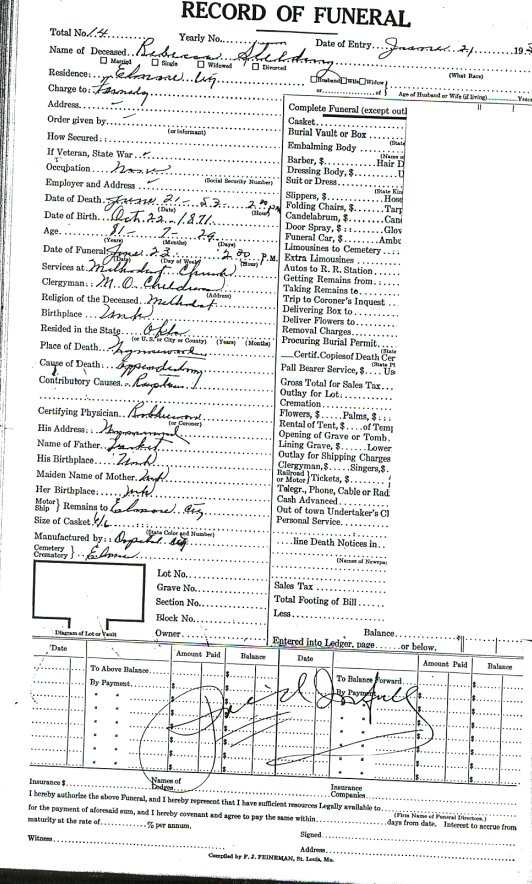 RECORD OF FUNERAL
Total No. 14 Yearly No. Date of Entry June 21 195
Name of Deceased Rebecca
Married Single Widowed Divorced (What Race)
Residence: Elmore City Husband Wife Widow
or of Age of Husband or Wife (if living) Years
Charge to: Family
Address
Order given by
(or informant)
How Secured:
If Veteran, State War
Occupation None
(Social Security Number)
Employer and Address
Date of Death June 21 - 52 2:00 pm
(Date) (Hour)
Date of Birth Oct. 22 - 1871
Age 81 - 7 - 29
(Years) (Months) (Days)
Date of Funeral June 23 2:00 P.M.
(Date) (Day of Week) (Hour)
Services at Methodist Church
Clergyman: M. O. Childress
(Address)
Religion of the Deceased Methodist
Birthplace Unk
Resided in the State Okla
(or U. S. or City or County) (Years) (Months)
Place of Death Wynnewood
Cause of Death
Contributory Causes
Certifying Physician
(or Coroner)
His Address Wynnewood
Name of Father
His Birthplace Unk
Maiden Name of Mother Unk
Her Birthplace Unk
Motor Ship Remains to Elmore City
Size of Casket 6/6
(State Color and Number)
Manufactured by:
Cemetery Crematory Elmore
Lot No.
Grave No.
Section No.
Block No.
Owner
Diagram of Lot or Vault
Complete Funeral (except outl
Casket
Burial Vault or Box
(State
Embalming Body
(Name of
Barber, $ Hair D
Dressing Body, $ U
Suit or Dress
(State Kin
Slippers, $ Hose
Folding Chairs, $ Tarp
Candelabrum, $ Cand
Door Spray, $ Glov
Funeral Car, $ Ambu
Limousines to Cemetery
Extra Limousines
Autos to R. R. Station
Getting Remains from
Taking Remains to
Trip to Coroner's Inquest
Delivering Box to
Deliver Flowers to
Removal Charges
Procuring Burial Permit
(State
Certif. Copies of Death Cer
(State Pl
Pall Bearer Service, $ Us
Gross Total for Sales Tax
Outlay for Lot:
Cremation
Flowers, $ Palms, $
Rental of Tent, $ of Temp
Opening of Grave or Tomb
Lining Grave, $ Lower
Outlay for Shipping Charges
Clergyman, $ Singers, $
Railroad or Motor Tickets, $
Telegr., Phone, Cable or Rad
Cash Advanced
Out of town Undertaker's Cl
Personal Service
line Death Notices in
(Names of Newspa
Sales Tax
Total Footing of Bill
Less
Balance
Entered into Ledger, page or below.
Date Amount Paid Balance Date Amount Paid Balance
To Above Balance To Balance Forward
By Payment By Payment
" " " "
" " " "
" " " "
" " " "
" " " "
Paid In full
Insurance $ Names of Lodges Insurance Companies
I hereby authorize the above Funeral, and I hereby represent that I have sufficient resources Legally available to
(Firm Name of Funeral Directors.)
for the payment of aforesaid sum, and I hereby covenant and agree to pay the same within days from date. Interest to accrue from
maturity at the rate of % per annum. Signed
Witness Address
Compiled by F. J. FEINEMAN, St. Louis, Mo.